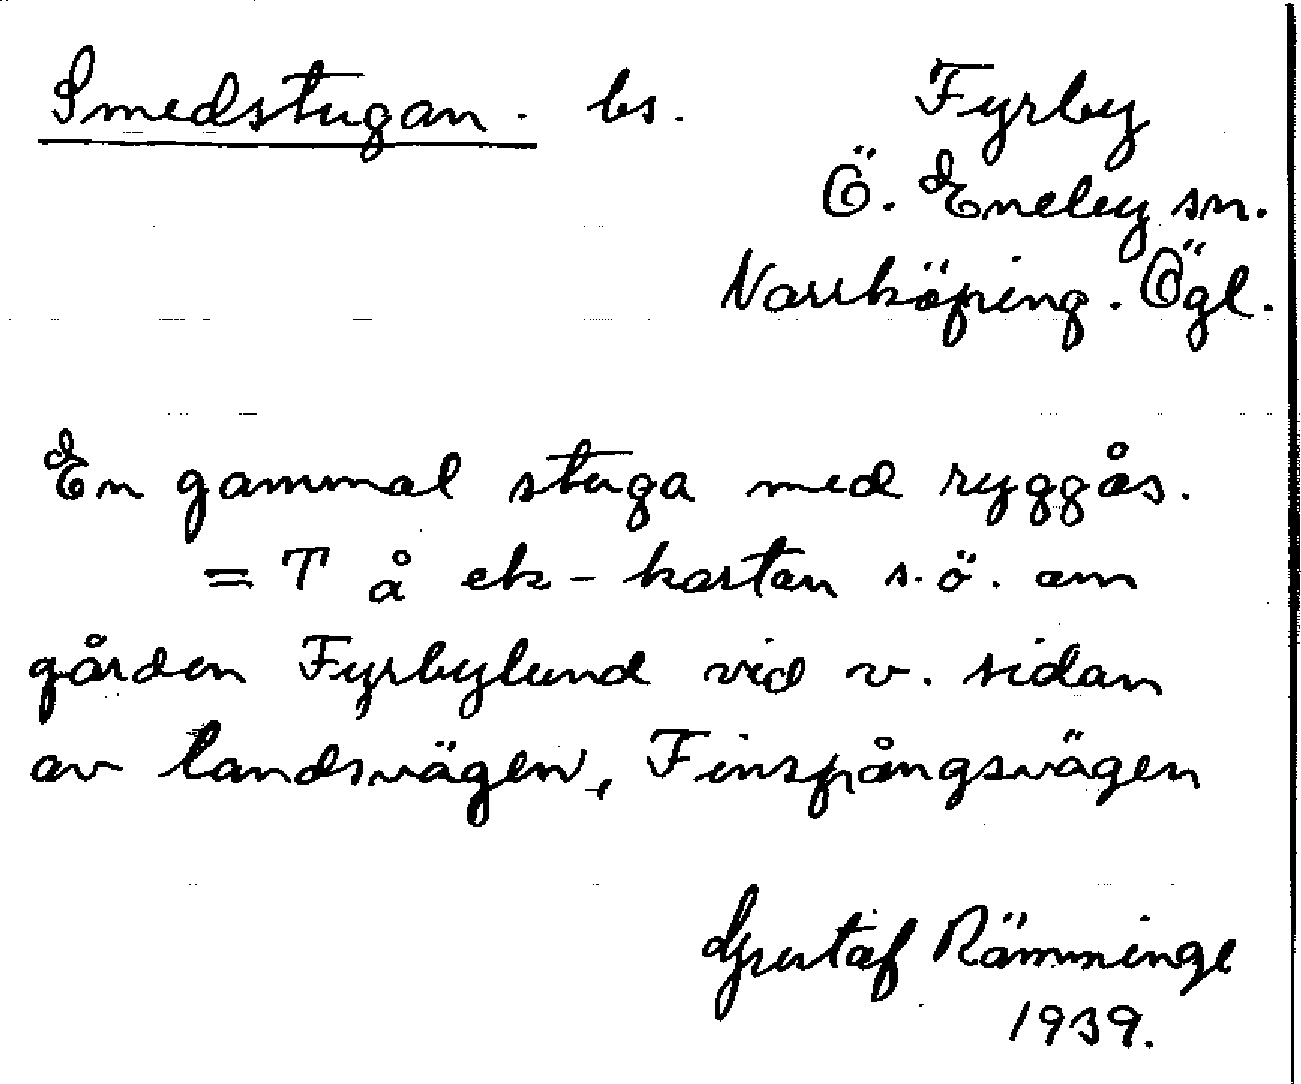 Smedstugan. bs. Fyrby
Ö. Eneby sn.
Norrköping. Ögl.
En gammal stuga med ryggås.
= T å ek-kartan s.ö. om
gården Fyrbylund vid v. sidan
av landsvägen, Finspångsvägen
Gustaf Rämminge
1939.